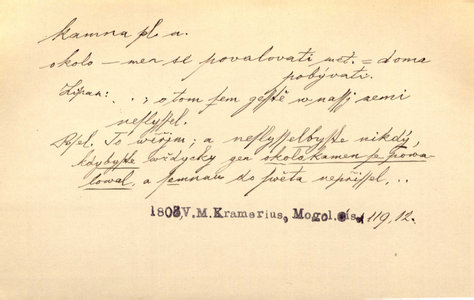 kamna pl. n.
okolo – men se povalovati met. = doma
pobývati.
Zipan: . . ; o tom sem geſſtě w naſſj zemi
neſlyſſel.
Poſel. To wěřjm; a neſlyſſelbyſte nikdy,
kdybyſte wždycky gen okolo kamen ſe powa-
lowal, a ſemnau do ſwěta nepřiſſel, ..
1803 V.M.Kramerius, Mogol. 119, 12.